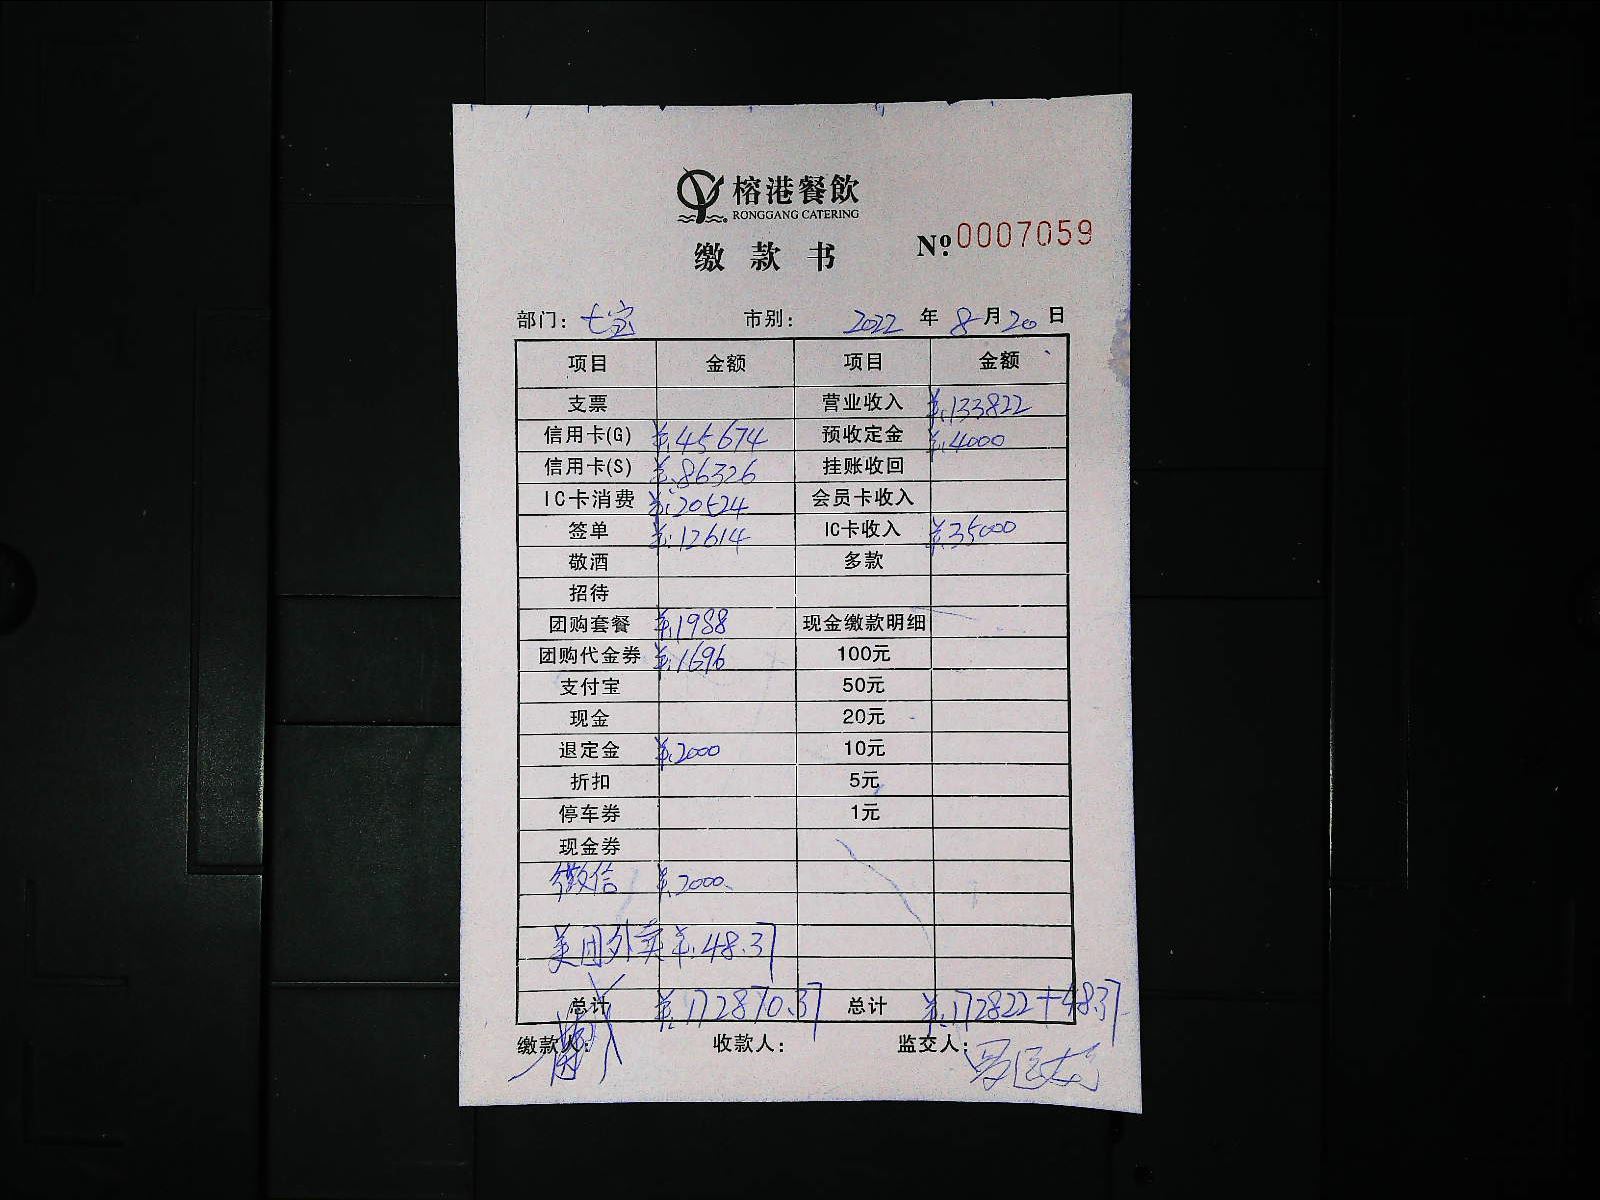 榕港餐飲
RONGGANG CATERING
缴款书 №:0007059
部门: 七宝 市别: 2022 年 8 月 20 日
项目 金额 项目 金额
支票 营业收入 ¥.133822
信用卡(G) ¥.45674 预收定金 ¥.4000
信用卡(S) ¥.86326 挂账收回
IC卡消费 ¥.20524 会员卡收入
签单 ¥.12614 IC卡收入 ¥.35000
敬酒 多款
招待
团购套餐 ¥.1988 现金缴款明细
团购代金券 ¥.1696 100元
支付宝 50元
现金 20元
退定金 ¥.2000 10元
折扣 5元
停车券 1元
现金券
微信 ¥.2000
美团外卖 ¥.48.37
总计 ¥.172870.37 总计 ¥.172822+48.37
缴款人: 收款人: 监交人: